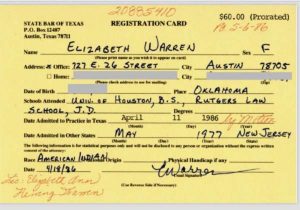 20885410
STATE BAR OF TEXAS
P.O. Box 12487
Austin, Texas 78711
REGISTRATION CARD
$60.00 (Prorated)
Pd 5-6-86
Name ELIZABETH WARREN Sex F
(Please print name as you wish it to appear on card)
Address: Office: 727 E. 26 STREET City AUSTIN 78705
Home:
Date of Birth Place OKLAHOMA
Schools Attended UNIV. OF HOUSTON, B.S., RUTGERS LAW
SCHOOL, J.D.
Date Admitted to Practice in Texas April 11 1986 by Motion
Date Admitted in Other States MAY 1977 NEW JERSEY
The following information is for statistical purposes only and will not be disclosed to any person or organization without the express written consent of the attorney.
Race AMERICAN INDIAN Physical Handicap if any
Date 4/18/86 EWarren
(Signature)
(Use Reverse Side if Necessary)
Elizabeth Ann
Herring Warren